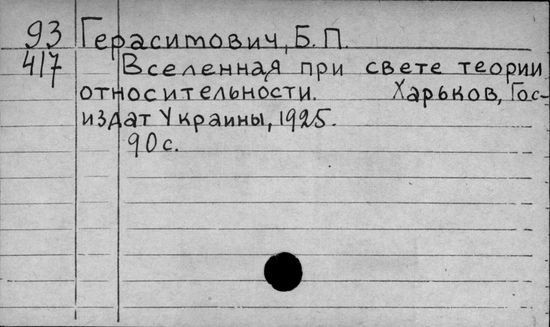 93 Герасимович, Б. П.
417 Вселенная при свете теории
относительности. Харьков, Гос-
издат Украины, 1925.
90 с.